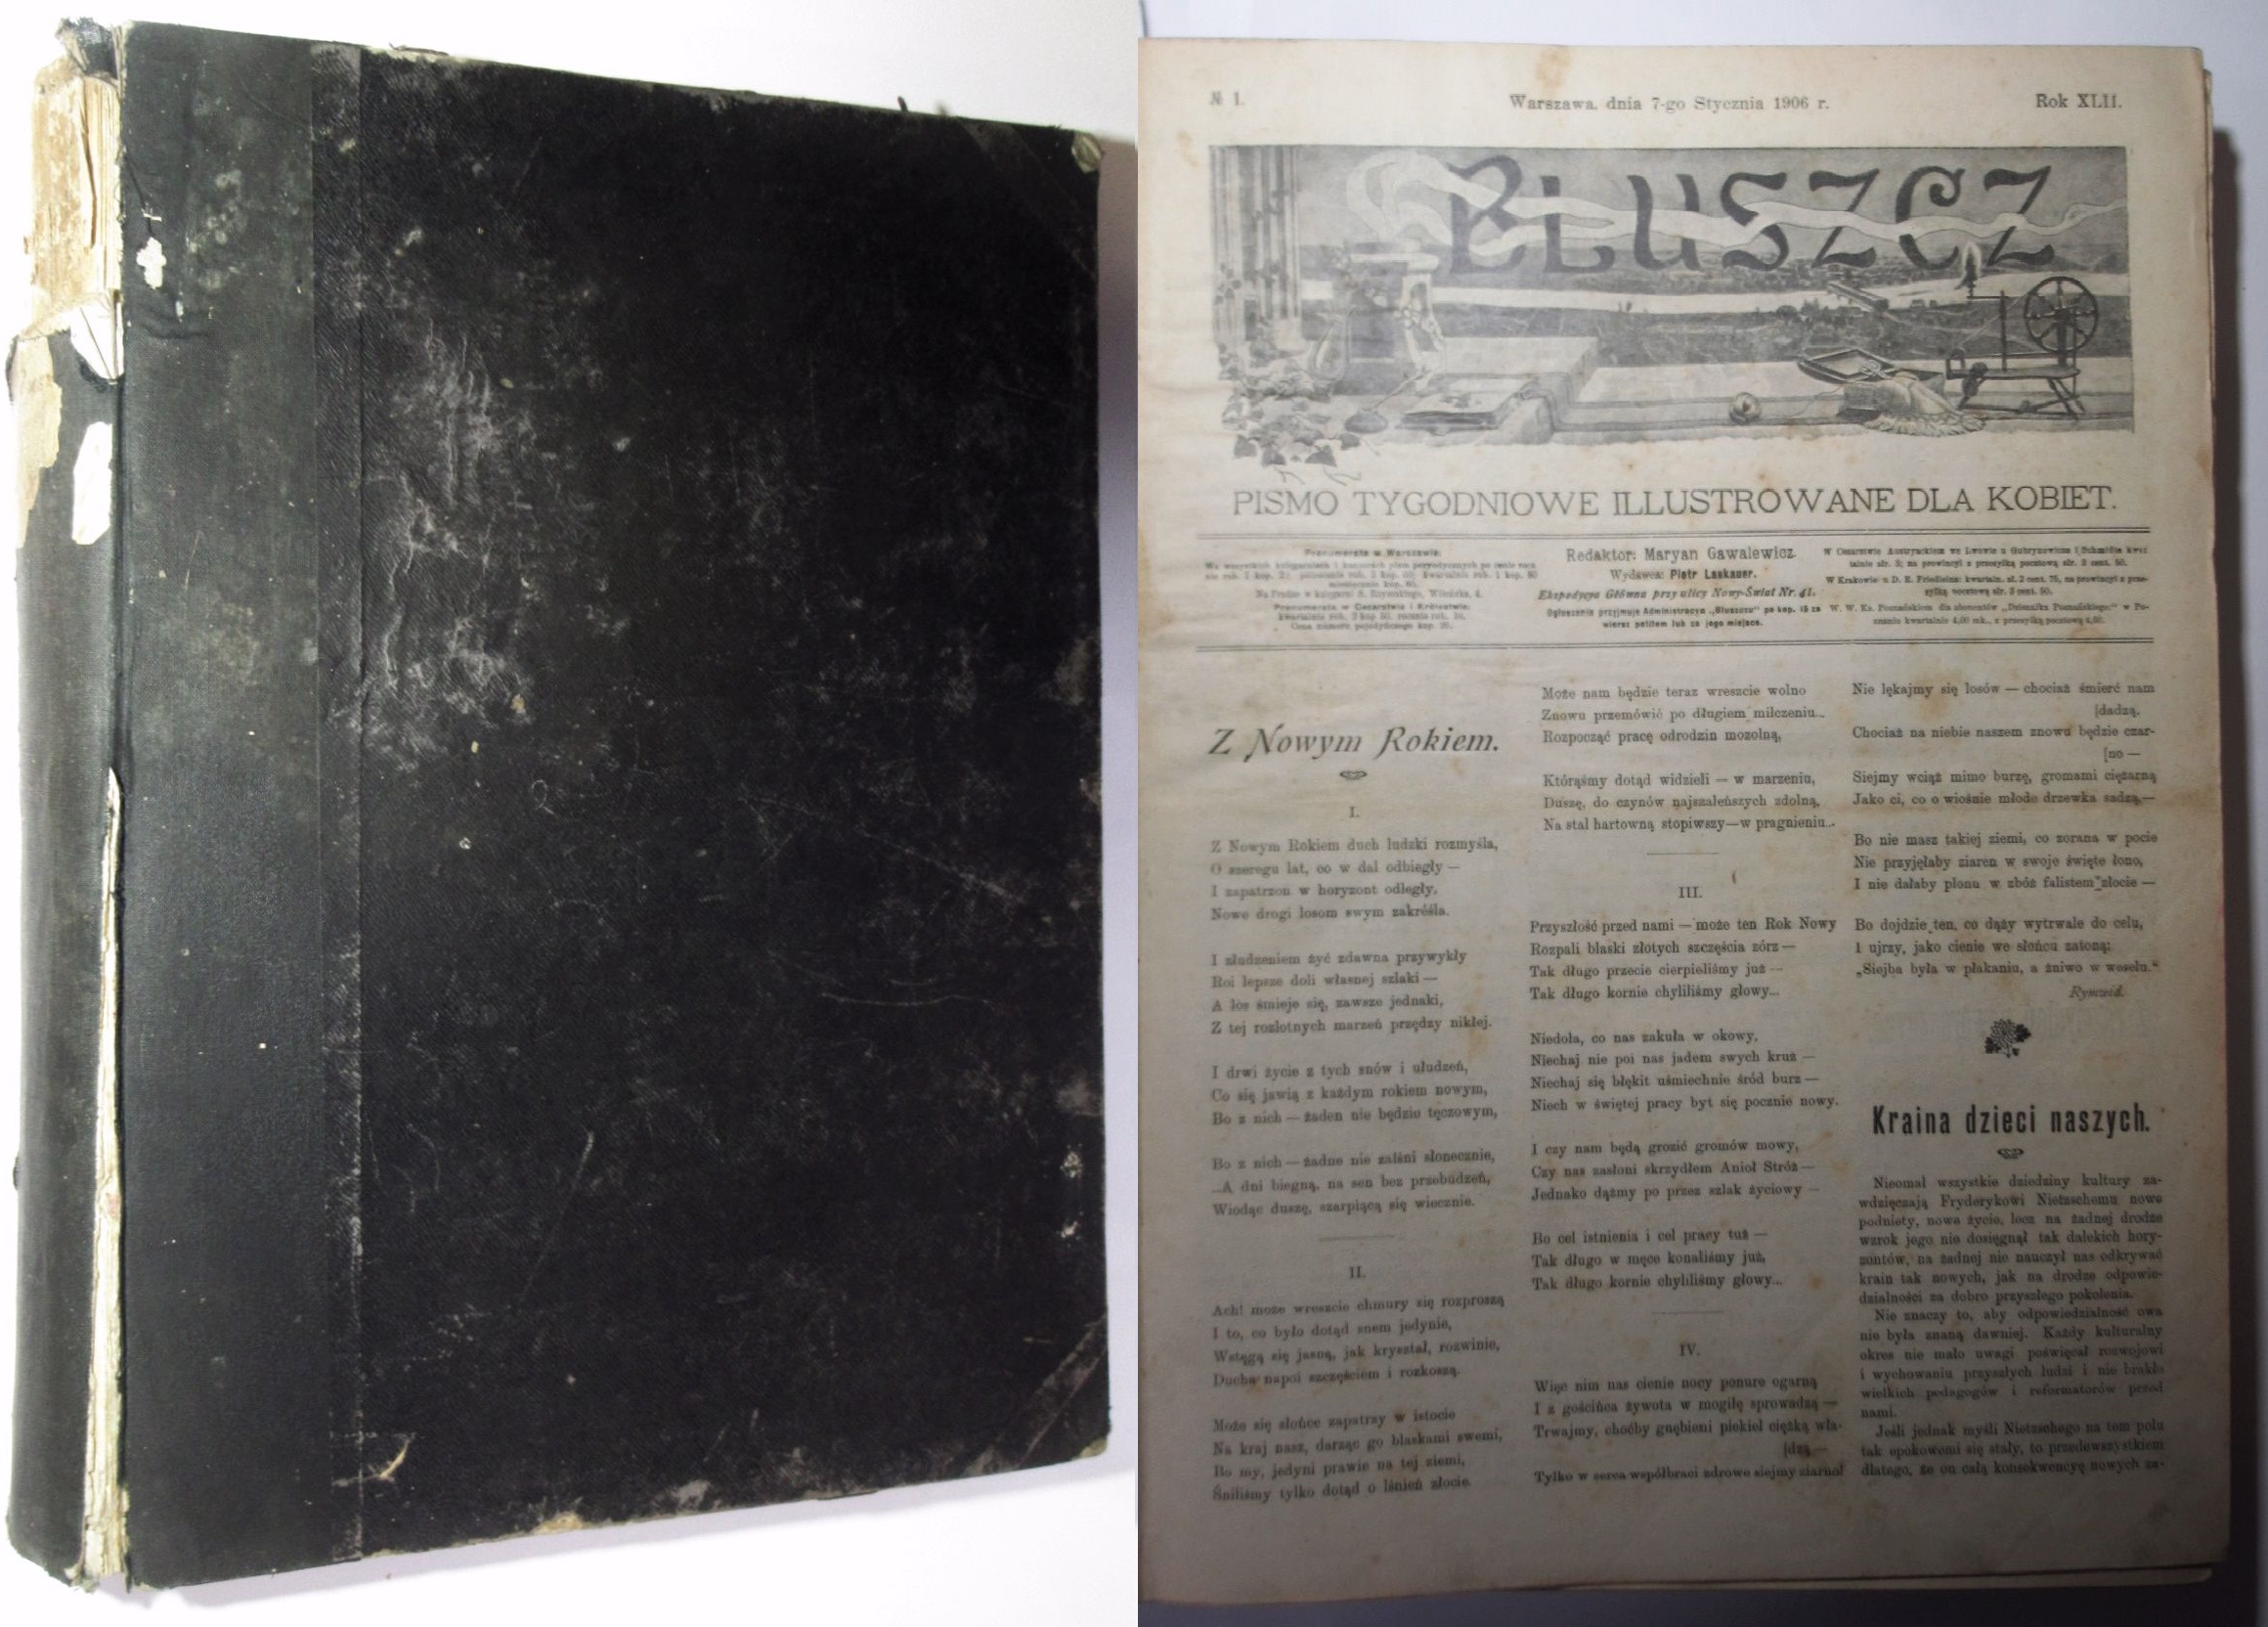 № 1.
Warszawa, dnia 7-go Stycznia 1906 r.
Rok XLII.
BLUSZCZ
PISMO TYGODNIOWE ILLUSTROWANE DLA KOBIET.
Prenumerata w Warszawie:
We wszystkich księgarniach i kantorach pism peryodycznych po cenie rocz
miesięcznie kop. 60.
Prenumerata w Cesarstwie i Królestwie:
Cena numeru pojedyńczego kop. 20.
Redaktor: Maryan Gawalewicz.
Wydawca: Piotr Laskauer.
Ekspedycya Główna przy ulicy Nowy-Świat Nr. 41.
Ogłoszenia przyjmuje Administracya „Bluszczu" po kop. 15 za
wiersz petitem lub za jego miejsce.
W Cesarstwie Austryackiem we Lwowie u Gubrynowicza i Schmidta kwar
talnie złr. 3; na prowincyi z przesyłką pocztową złr. 3 cent. 50.
W Krakowie u D. E. Friedleina: kwartaln. zł. 2 cent. 75, na prowincyi z prze-
syłką pocztową złr. 3 cent. 50.
W. W. Ks. Poznańskiem dla abonentów „Dziennika Poznańskiego:" w Po-
znaniu kwartalnie 4,00 mk., z przesyłką pocztową
Z Nowym Rokiem.
I.
Z Nowym Rokiem duch ludzki rozmyśla,
O szeregu lat, co w dal odbiegły —
I zapatrzon w horyzont odległy,
Nowe drogi losom swym zakréśla.
I złudzeniem żyć zdawna przywykły
Roi lepsze doli własnej szlaki —
A los śmieje się, zawsze jednaki,
Z tej rozlotnych marzeń przędzy nikłej.
I drwi życie z tych snów i ułudzeń,
Co się jawią z każdym rokiem nowym,
Bo z nich — żaden nie będzie tęczowym,
Bo z nich — żadne nie zalśni słonecznie,
...A dni biegną, na sen bez przebudzeń,
Wiodąc duszę, szarpiącą się wiecznie.
II.
Ach! może wreszcie chmury się rozproszą
I to, co było dotąd snem jedynie,
Wstęgą się jasną, jak kryształ, rozwinie,
Ducha napoi szczęściem i rozkoszą.
Może się słońce zapatrzy w istocie
Na kraj nasz, darząc go blaskami swemi,
Bo my, jedyni prawie na tej ziemi,
Śniliśmy tylko dotąd o lśnień złocie.
Może nam będzie teraz wreszcie wolno
Znowu przemówić po długiem milczeniu...
Rozpocząć pracę odrodzin mozolną,
Którąśmy dotąd widzieli — w marzeniu,
Duszę, do czynów najszaleńszych zdolną,
Na stal hartowną stopiwszy—w pragnieniu...
III.
Przyszłość przed nami — może ten Rok Nowy
Rozpali blaski złotych szczęścia zórz —
Tak długo przecie cierpieliśmy już —
Tak długo kornie chyliliśmy głowy...
Niedola, co nas zakuła w okowy,
Niechaj nie poi nas jadem swych kruż —
Niechaj się błękit uśmiechnie śród burz —
Niech w świętej pracy byt się pocznie nowy.
I czy nam będą grozić gromów mowy,
Czy nas zasłoni skrzydłem Anioł Stróż —
Jednako dążmy po przez szlak życiowy —
Bo cel istnienia i cel pracy tuż —
Tak długo w męce konaliśmy już,
Tak długo kornie chyliliśmy głowy...
IV.
Więc nim nas cienie nocy ponure ogarną
I z gościńca żywota w mogiłę sprowadzą —
Trwajmy, choćby gnębieni piekieł ciężką wła-
[dzą —
Tylko w serca współbraci zdrowe siejmy ziarna!
Nie lękajmy się losów — chociaż śmierć nam
[dadzą,
Chociaż na niebie naszem znowu będzie czar-
[no —
Siejmy wciąż mimo burzę, gromami ciężarną
Jako ci, co o wiośnie młode drzewka sadzą,—
Bo nie masz takiej ziemi, co zorana w pocie
Nie przyjęłaby ziaren w swoje święte łono,
I nie dałaby plonu w zbóż falistem złocie —
Bo dojdzie ten, co dąży wytrwale do celu,
I ujrzy, jako cienie we słońcu zatoną:
„Siejba była w płakaniu, a żniwo w weselu."
Kraina dzieci naszych.
Nieomal wszystkie dziedziny kultury za-
wdzięczają Fryderykowi Nietzschemu nowe
podniety, nowe życie, lecz na żadnej drodze
wzrok jego nie dosięgnął tak dalekich hory-
zontów, na żadnej nie nauczył nas odkrywać
krain tak nowych, jak na drodze odpowie-
dzialności za dobro przyszłego pokolenia.
Nie znaczy to, aby odpowiedzialność owa
nie była znaną dawniej. Każdy kulturalny
okres nie mało uwagi poświęcał rozwojowi
i wychowaniu przyszłych ludzi i nie brakło
wielkich pedagogów i reformatorów przed
nami.
Jeśli jednak myśli Nietzschego na tem polu
tak epokowemi się stały, to przedewszystkiem
dlatego, że on całą konsekwencyę nowych za-